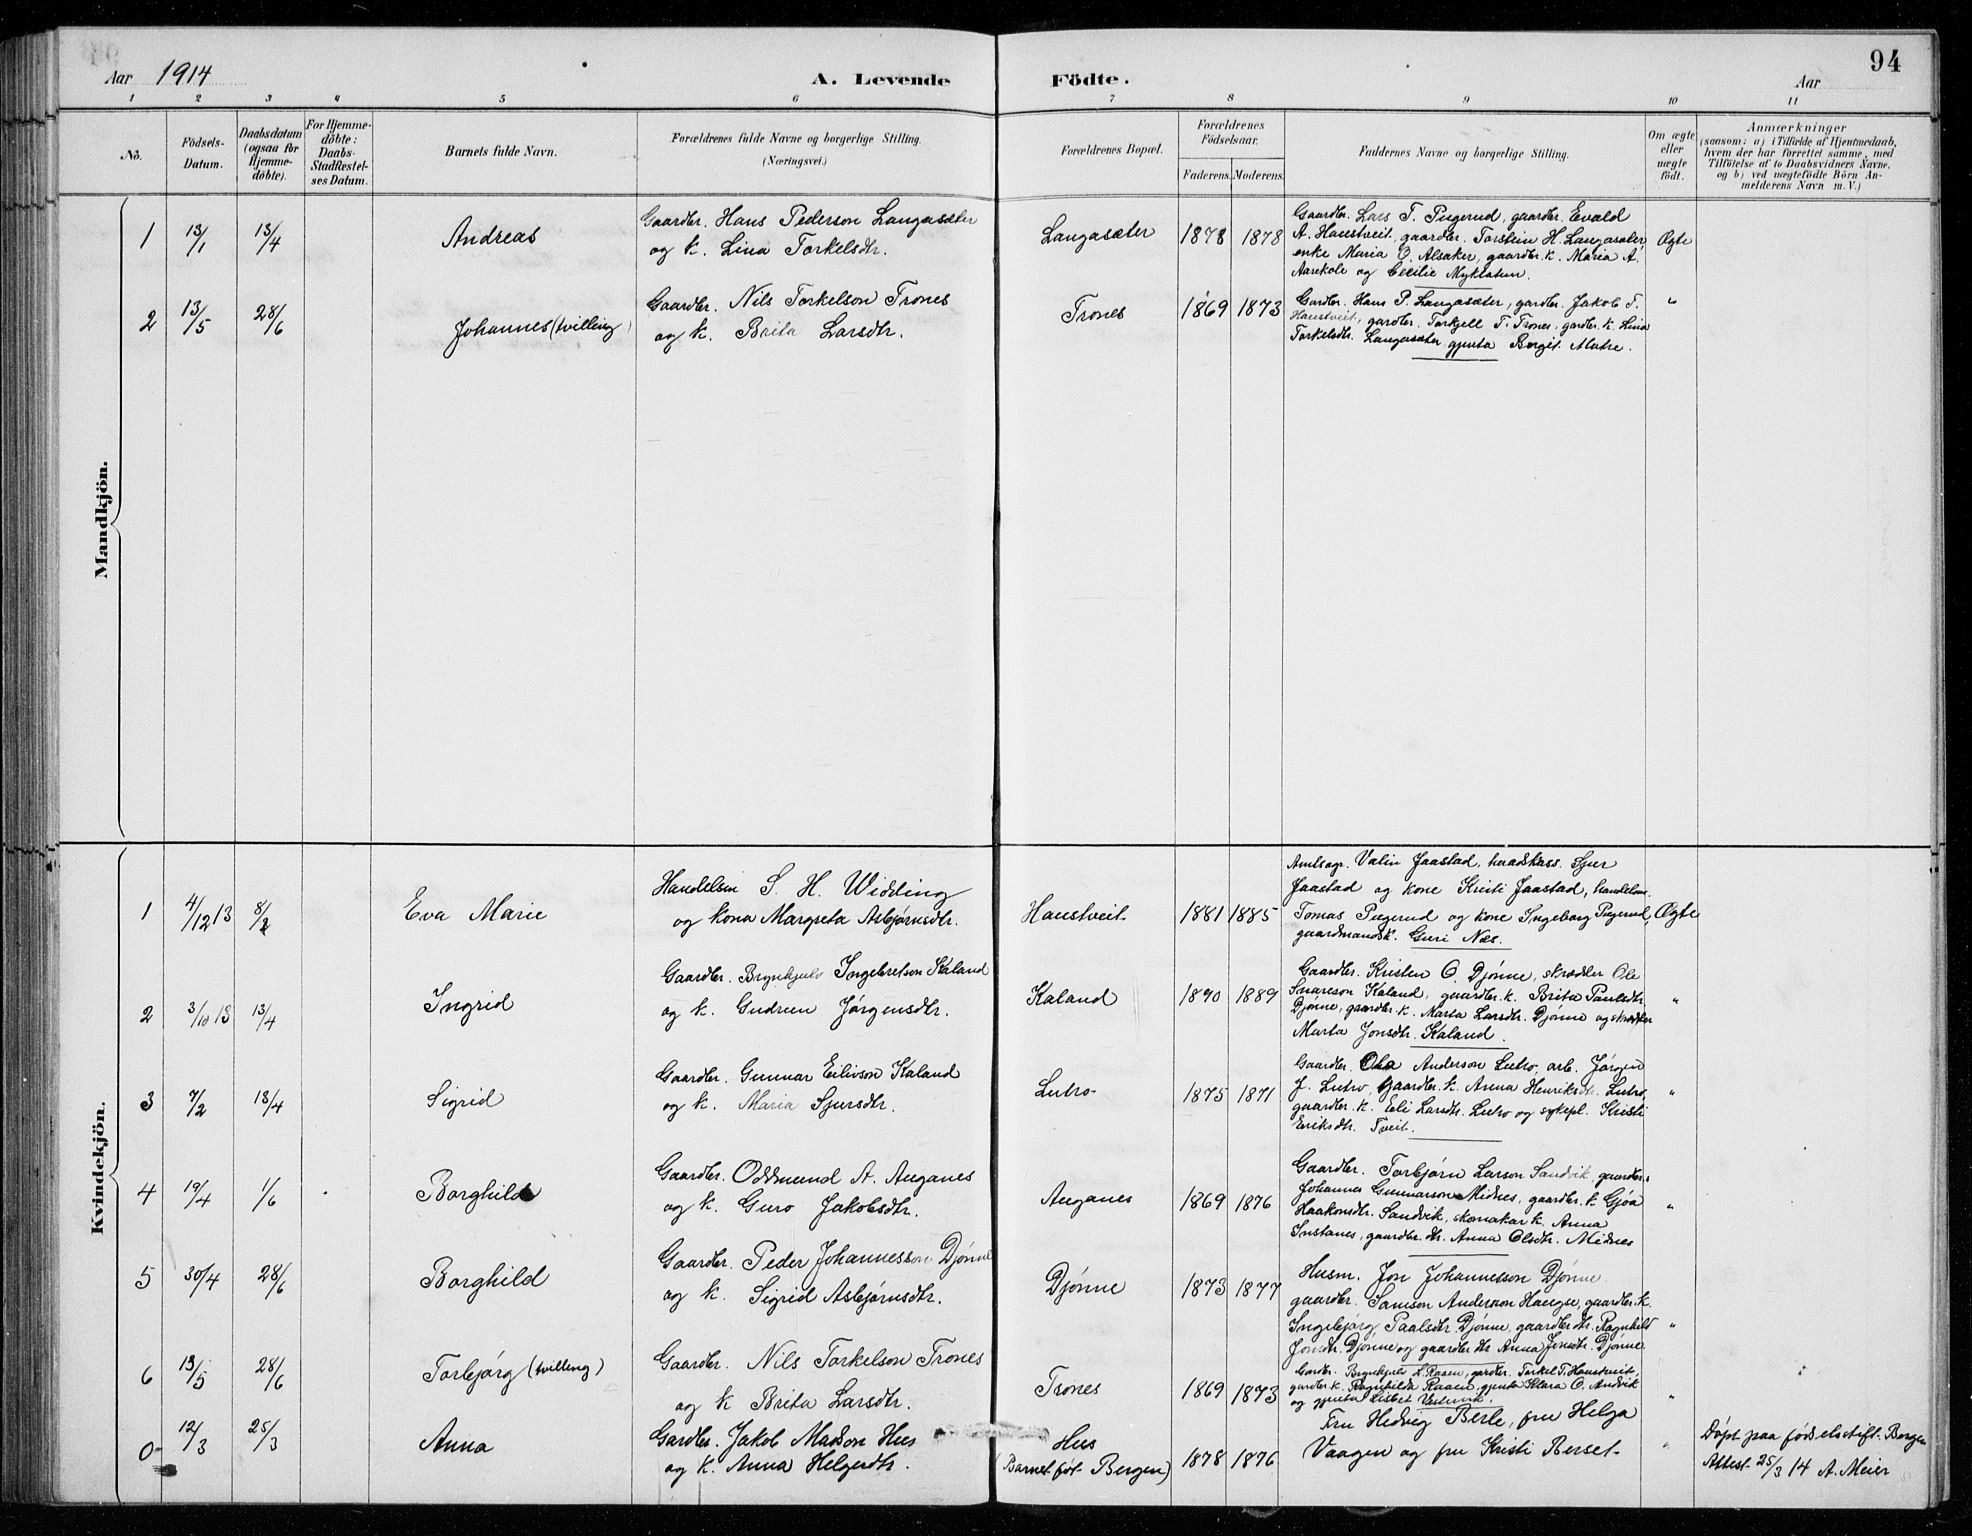 94
Aar 1914
A. Levende
Födte.
Aar
1 2 3 4 5 6 7 8 9 10 11
No.
Födsels-
Datum.
Daabsdatum
(ogsaa för
Hjemme-
döbte).
For Hjemme-
döbte:
Daabs-
Stadfæstel-
ses Datum.
Barnets fulde Navn.
Forældrenes fulde Navne og borgerlige Stilling.
(Næringsvei.)
Forældrenes Bopæl.
Forældrenes
Födselsaar.
Faderens. Moderens.
Faddernes Navne og borgerlige Stilling.
Om ægte
eller
uægte
födt.
Anmærkninger
(saasom: a) i Tilfælde af Hjemmedaab,
hvem der har forrettet samme, med
Tilföielse af to Daabsvidners Navne.
og b) ved uægtefödte Börn An-
melderens Navn m. V.)
Mandkjön.
1 13/1 13/4 Andreas
Gaardbr. Hans Pederson Langasæter
og k. Lina Torkelsdtr.
Langasæter 1878 1878
Gaardbr. Lars T. Pugerud, gaardbr. Evald
A. Haustveit, gaardbr. Torstein H. Langasæter,
enke Maria O. Alsaker, gaardbr. k. Maria A.
Aarekole og Cecilie Myklatun.
Ægte
2 13/5 28/6 Johannes (tvilling)
Gaardbr. Nils Torkelson Trones
og k. Brita Larsdtr.
Trones 1869 1873
Gardbr. Hans P. Langasæter, gardbr. Jakob T.
Haustveit, gardbr. Torkjell T. Trones, gardbr. k. Lina
Torkelsdtr. Langasæter, gjenta Bergit Matre.
"
Kvindekjön.
1 4/12 13 8/2 Eva Marie
Handelsm S. H. Widding
og kona Margreta Asbjørnsdtr.
Haustveit 1881 1885
Amtsagr. Valin Jaastad, heradskass. Sjur
Jaastad og kone Kristi Jaastad, handelsm.
Tomas Pugerud og kone Ingeborg Pugerud,
gaardmandsk. Guri Næs.
Ægte
2 3/10 13 13/4 Ingrid
Gaardbr. Brynhjulv Ingebretson Kaland
og k. Gudrun Jørgensdtr.
Kaland 1890 1889
Gaardbr. Kristen O. Djønne, skrædder Ole
Snareson Kaland, gaardbr. k. Brita Paulsdtr.
Djønne, gaardbr. k. Marta Larsdtr. Djønne og skrædder
Marta Jonsdtr. Kaland.
"
3 7/2 13/4 Sigrid
Gaardbr. Gunnar Eilivson Kaland
og k. Maria Sjursdtr.
Lutro 1875 1871
Gaardbr. Ola Anderson Lutro, arb. Jørgen
J. Lutro, gaardbr. k. Anna Henriksdtr. Lutro,
gaardbr. k. Eli Larsdtr. Lutro og sykepl. Kristi
Eriksdtr. Tveit.
"
4 19/4 1/6 Borghild
Gaardbr. Oddmund A. Auganes
og k. Guro Jakobsdtr.
Auganes 1869 1876
Gaardbr. Torbjørn Larson Sandvik, gaardbr.
Johannes Gunnarson Midnes, gaardbr. k. Gjøa
Haakonsdtr. Sandvik, skomakar k. Anna
Instanes, gaardbr. dtr. Anna Olsdtr. Midnes
"
5 30/4 28/6 Borghild
Gaardbr. Peder Johannesson Djønne
og k. Sigrid Asbjørnsdtr.
Djønne 1873 1877
Husm. Jon Johannesson Djønne,
gaardbr. Samson Anderson Haugse, gaardbr. k.
Ingebjørg Paalsdtr Djønne, gaardbr dtr. Ragnhild
Jonsdtr. Djønne og gaardbr dtr Anna Jonsdtr. Djønne
"
6 13/5 28/6 Torbjørg (tvilling)
Gaardbr. Nils Torkelson Trones
og k Brita Larsdtr.
Trones 1869 1873
Gardbr. Brynhjulv L. Raaen, gardbr. Torkel T. Haustveit,
gardbr. k. Ragnhilda Raaen, gjenta Klara O. Andvik
og gjenta Lisbet Vestervik.
"
0 12/3 25/3 Anna
Gardbr. Jakob Madson Hus
og k. Anna Helgesdtr.
Hus
(Barnet føt Bergen) 1878 1876
Fru Hedvig Berle, fru Helga
Vaagen og fru Kristi Berset
"
Døpt paa fødselsstift. Bergen
Attest 25/3 14 A. Meier